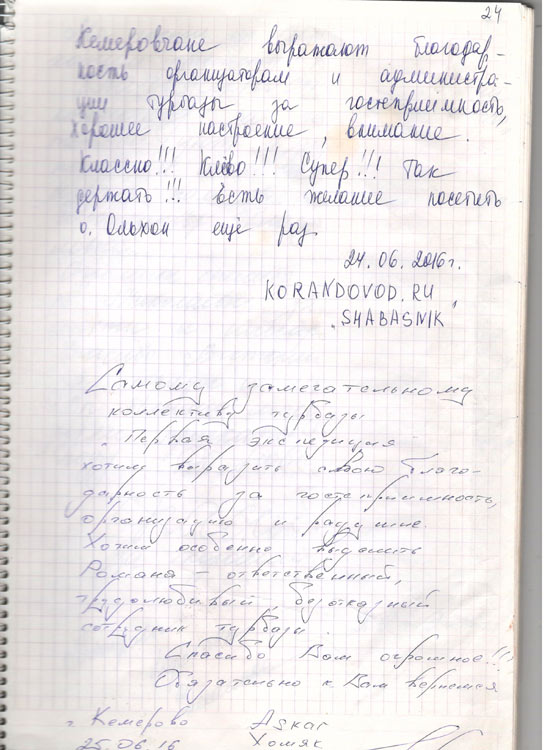 24
Кемеровчане выражают благодар-
ность организаторам и администра-
ции турбазы за гостеприимность,
хорошее настроение, внимание.
Классно!!! Клёво!!! Супер!!! Так
держать!!! Есть желание посетить
о. Ольхон ещё раз.
24.06.2016г.
KORANDOVOD.RU,
"SHABASNIK
Самому замечательному
коллективу турбазы
"Первая экспедиция"
хотим выразить свою благо-
дарность за гостеприимность,
организацию и радушие.
Хотим особенно выделить
Романа – ответственный,
трудолюбивый, безотказный
сотрудник турбазы.
Спасибо Вам огромное!!!
Обязательно к Вам вернемся
г. Кемерово Askar
25.06.16 Хомяк